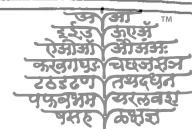 अ आ TM
इ ई उ ऊ ए ऍ
ऐ ओ औ ऑ अं अः
क ख ग घ ङ च छ ज झ ञ
ट ठ ड ढ ण त थ द ध न
प फ ब भ म य र ल व श
ष स ह ळ क्ष ज्ञ